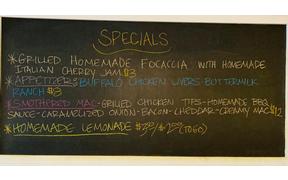 SPECIALS
*GRILLED HOMEMADE FOCACCIA WITH HOMEMADE
ITALIAN CHERRY JAM $3
*APPETIZERS: BUFFALO CHICKEN LIVERS-BUTTERMILK
RANCH $8
*SMOTHERED MAC-GRILLED CHICKEN TIPS-HOMEMADE BBQ
SAUCE-CARAMELIZED ONION-BACON-CHEDDAR-CREAMY MAC $12
*HOMEMADE LEMONADE (TOGO)